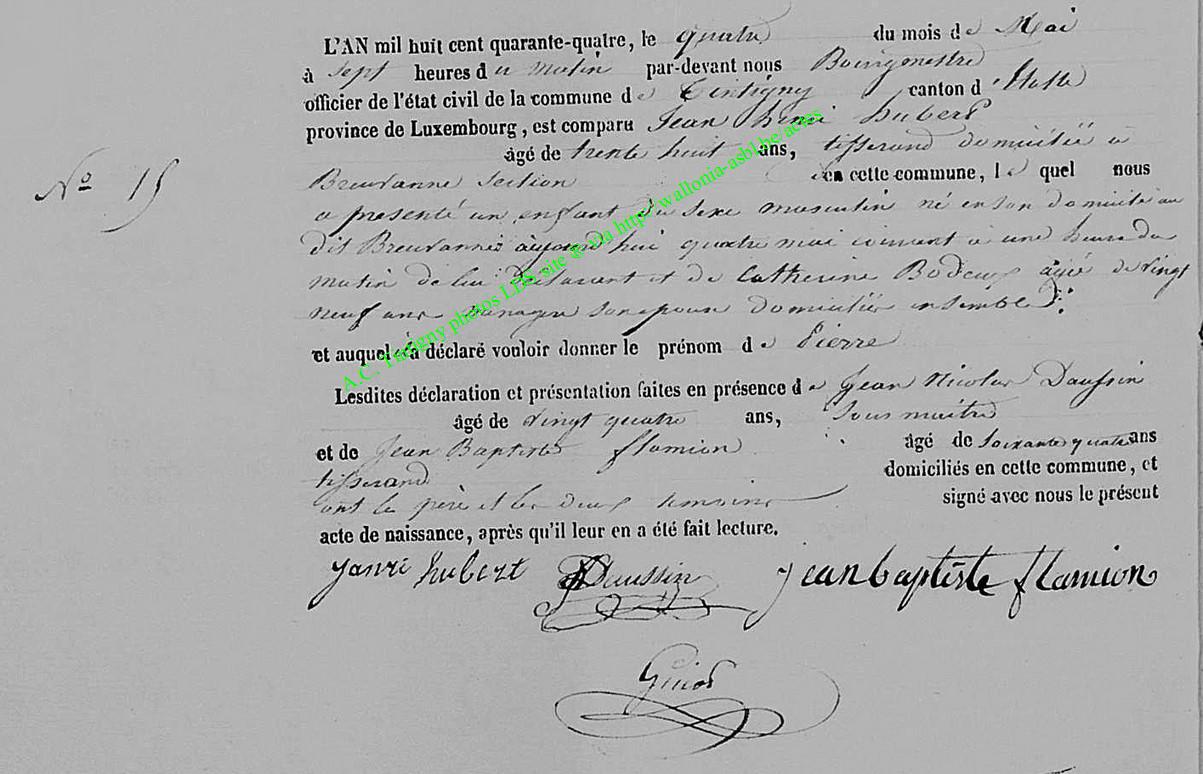 L'AN mil huit cent quarante-quatre, le quatre du mois de Mai
à sept heures du matin par-devant nous Bourgmestre
officier de l'état civil de la commune de Tintigny canton d'Etalle
province de Luxembourg, est comparu Jean henri hubert
âgé de trente huit ans, tisserand domicilié à
Nº 15
Breuvanne section en cette commune, le quel nous
a présenté un enfant du sexe masculin né en son domicile au
dit Breuvannes aujourd hui quatre mai courant à une heure du
matin de lui déclarant et de Catherine Bodeux âgée de vingt
neuf ans ménagère son epouse domiciliés ensemble
et auquel il a déclaré vouloir donner le prénom de Pierre
Lesdites déclaration et présentation faites en présence de Jean Nicolas Daussin
âgé de vingt quatre ans, sous maitre
et de Jean Baptiste flamion âgé de soixante quatre ans
tisserand domiciliés en cette commune, et
ont le père et les deux temoins signé avec nous le présent
acte de naissance, après qu'il leur en a été fait lecture.
hubert Daussin jean baptiste flamion
A.C. Tintigny photos LDS site @ via http://wallonia-asbl.be/actes